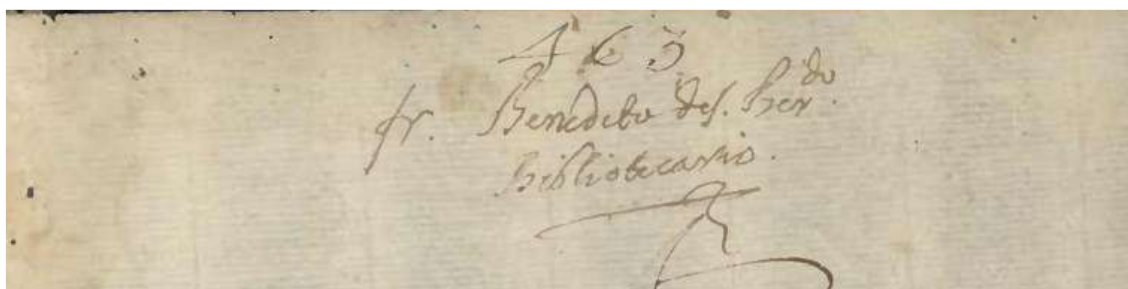 463
fr. Benedeto des. Ber.do
bibliotecario.